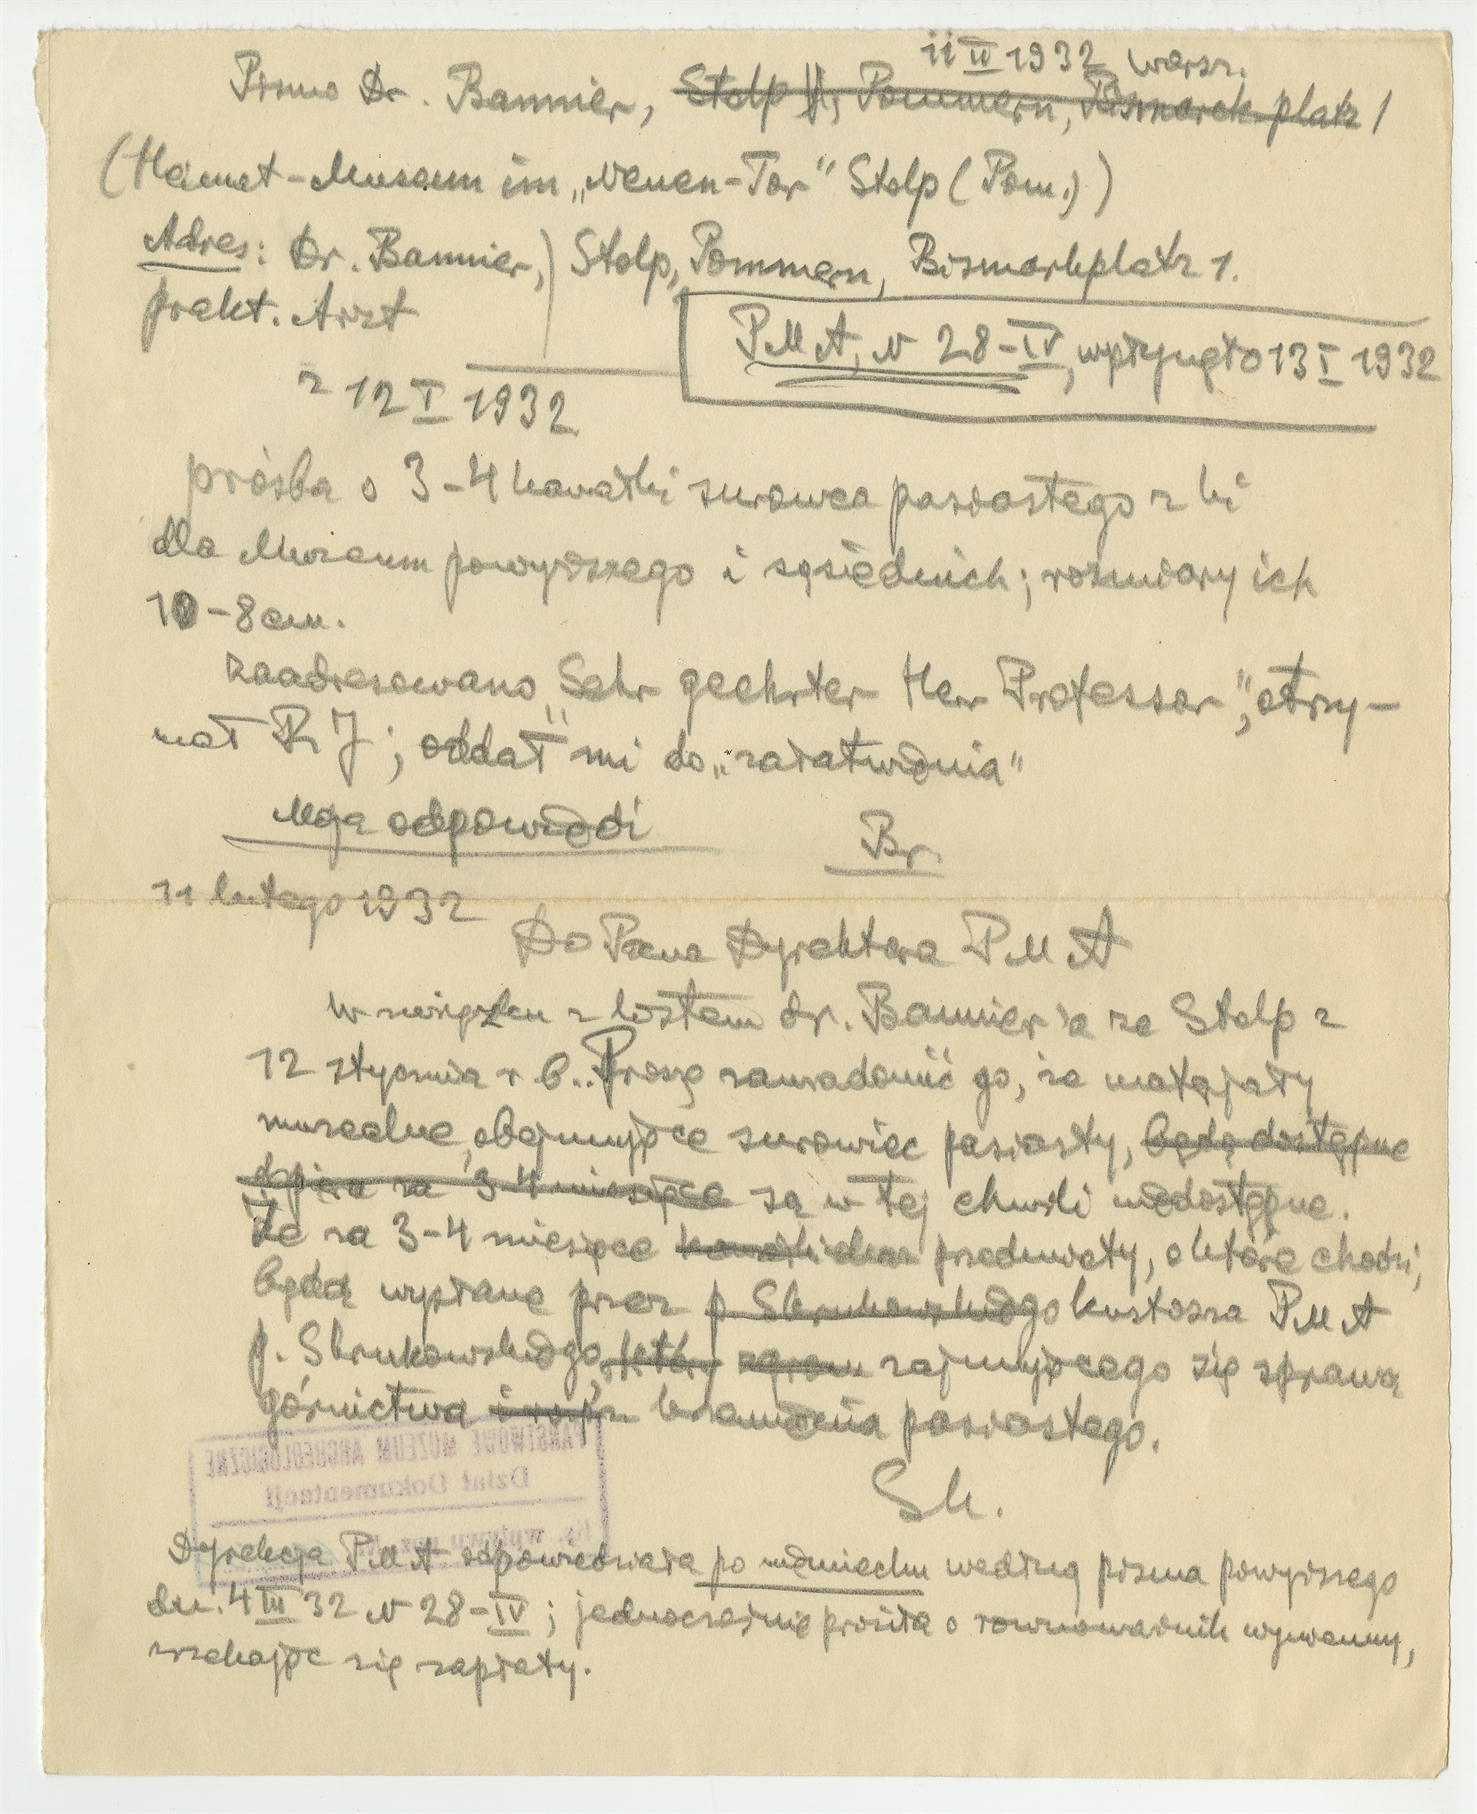 11 II 1932 Warsz.
Pismo Dr. Bannier, Stolp i, Pommern, Bismarckplatz 1
(Heimat-Museum im „Neuen-Tor" Stolp (Pom.))
Adres: Dr. Bannier,) Stolp, Pommern, Bismarkplatz 1.
prakt. Arzt
PMA, N 28-IV, wpłynęło 13 I 1932
z 12 I 1932
prośba o 3-4 kawałki surowca pasiastego z
dla Muzeum powyższego i sąsiednich; rozmiary ich
10-8cm.
Zaadresowano „Sehr geehrter Herr Professor", otrzy-
mał R J; oddał mi do „załatwienia"
Moja odpowiedź
Br
11 lutego 1932
Do Pana Dyrektora PMA
W związku z listem dr. Bannier'a ze Stolp z
12 stycznia r. b.. Proszę zawiadomić go, że materjały
muzealne, obejmujące surowiec pasiasty, będą dostępne
dopiero za 3-4 miesiące są w tej chwili niedostępne.
Że za 3-4 miesiące przedmioty, o które chodzi,
będą wysłane przez p Sbrukowskiego kustosza PMA
p. Sbrukowskiego, który zajmującego się sprawą
górnictwa krzemienia pasiastego.
Sk.
PAŃSTWOWE MUZEUM ARCHEOLOGICZNE
Dział Dokumentacji
Ks. wpływu
Dyrekcja PMA odpowiedziała po niemiecku według pisma powyższego
dn. 4 III 32 N 28-IV; jednocześnie prosiła o równoważnik wymienny,
zrzekając się zapłaty.